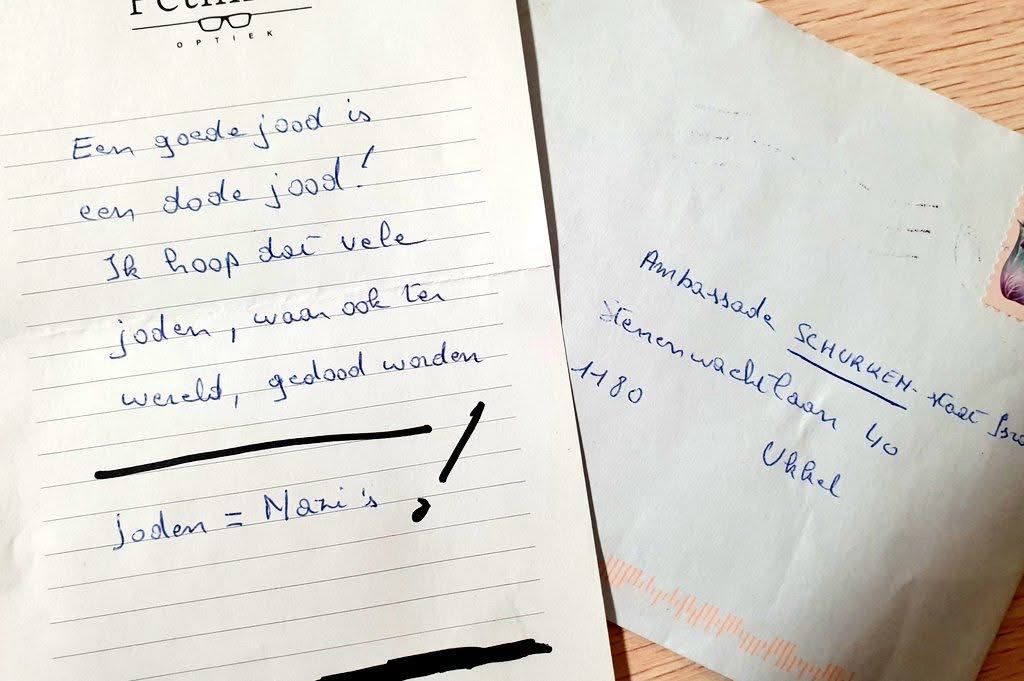 OPTIEK
Een goede jood is
een dode jood!
Ik hoop dat vele
joden, waar ook ter
wereld, gedood worden
joden = Nazi's !
Ambassade SCHURKEN-staat
Stenenwachtlaan 40
1180
Ukkel